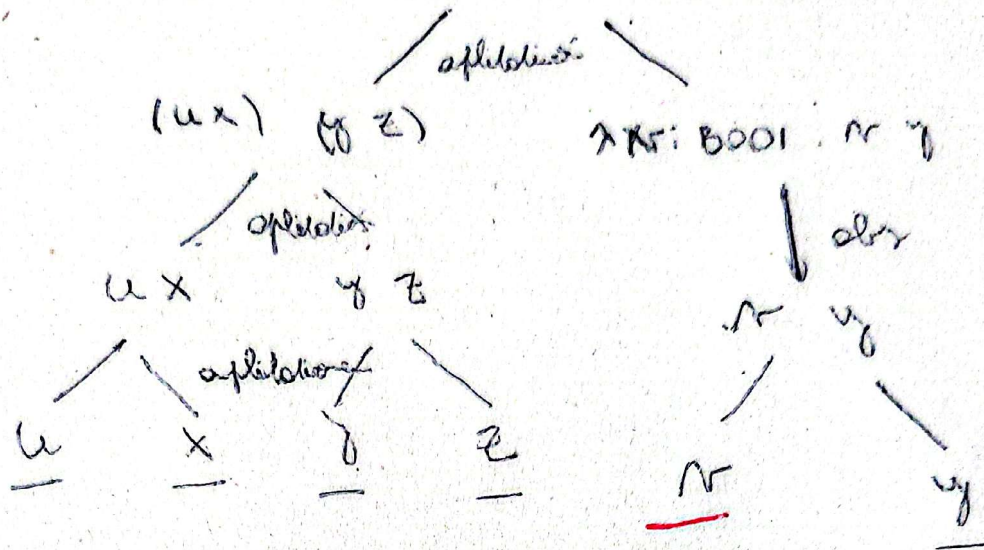 aplicación
(u x) (y z) λ v: Bool . v y
aplicación
abs
u x y z
v y
aplicación
u x y z
v y